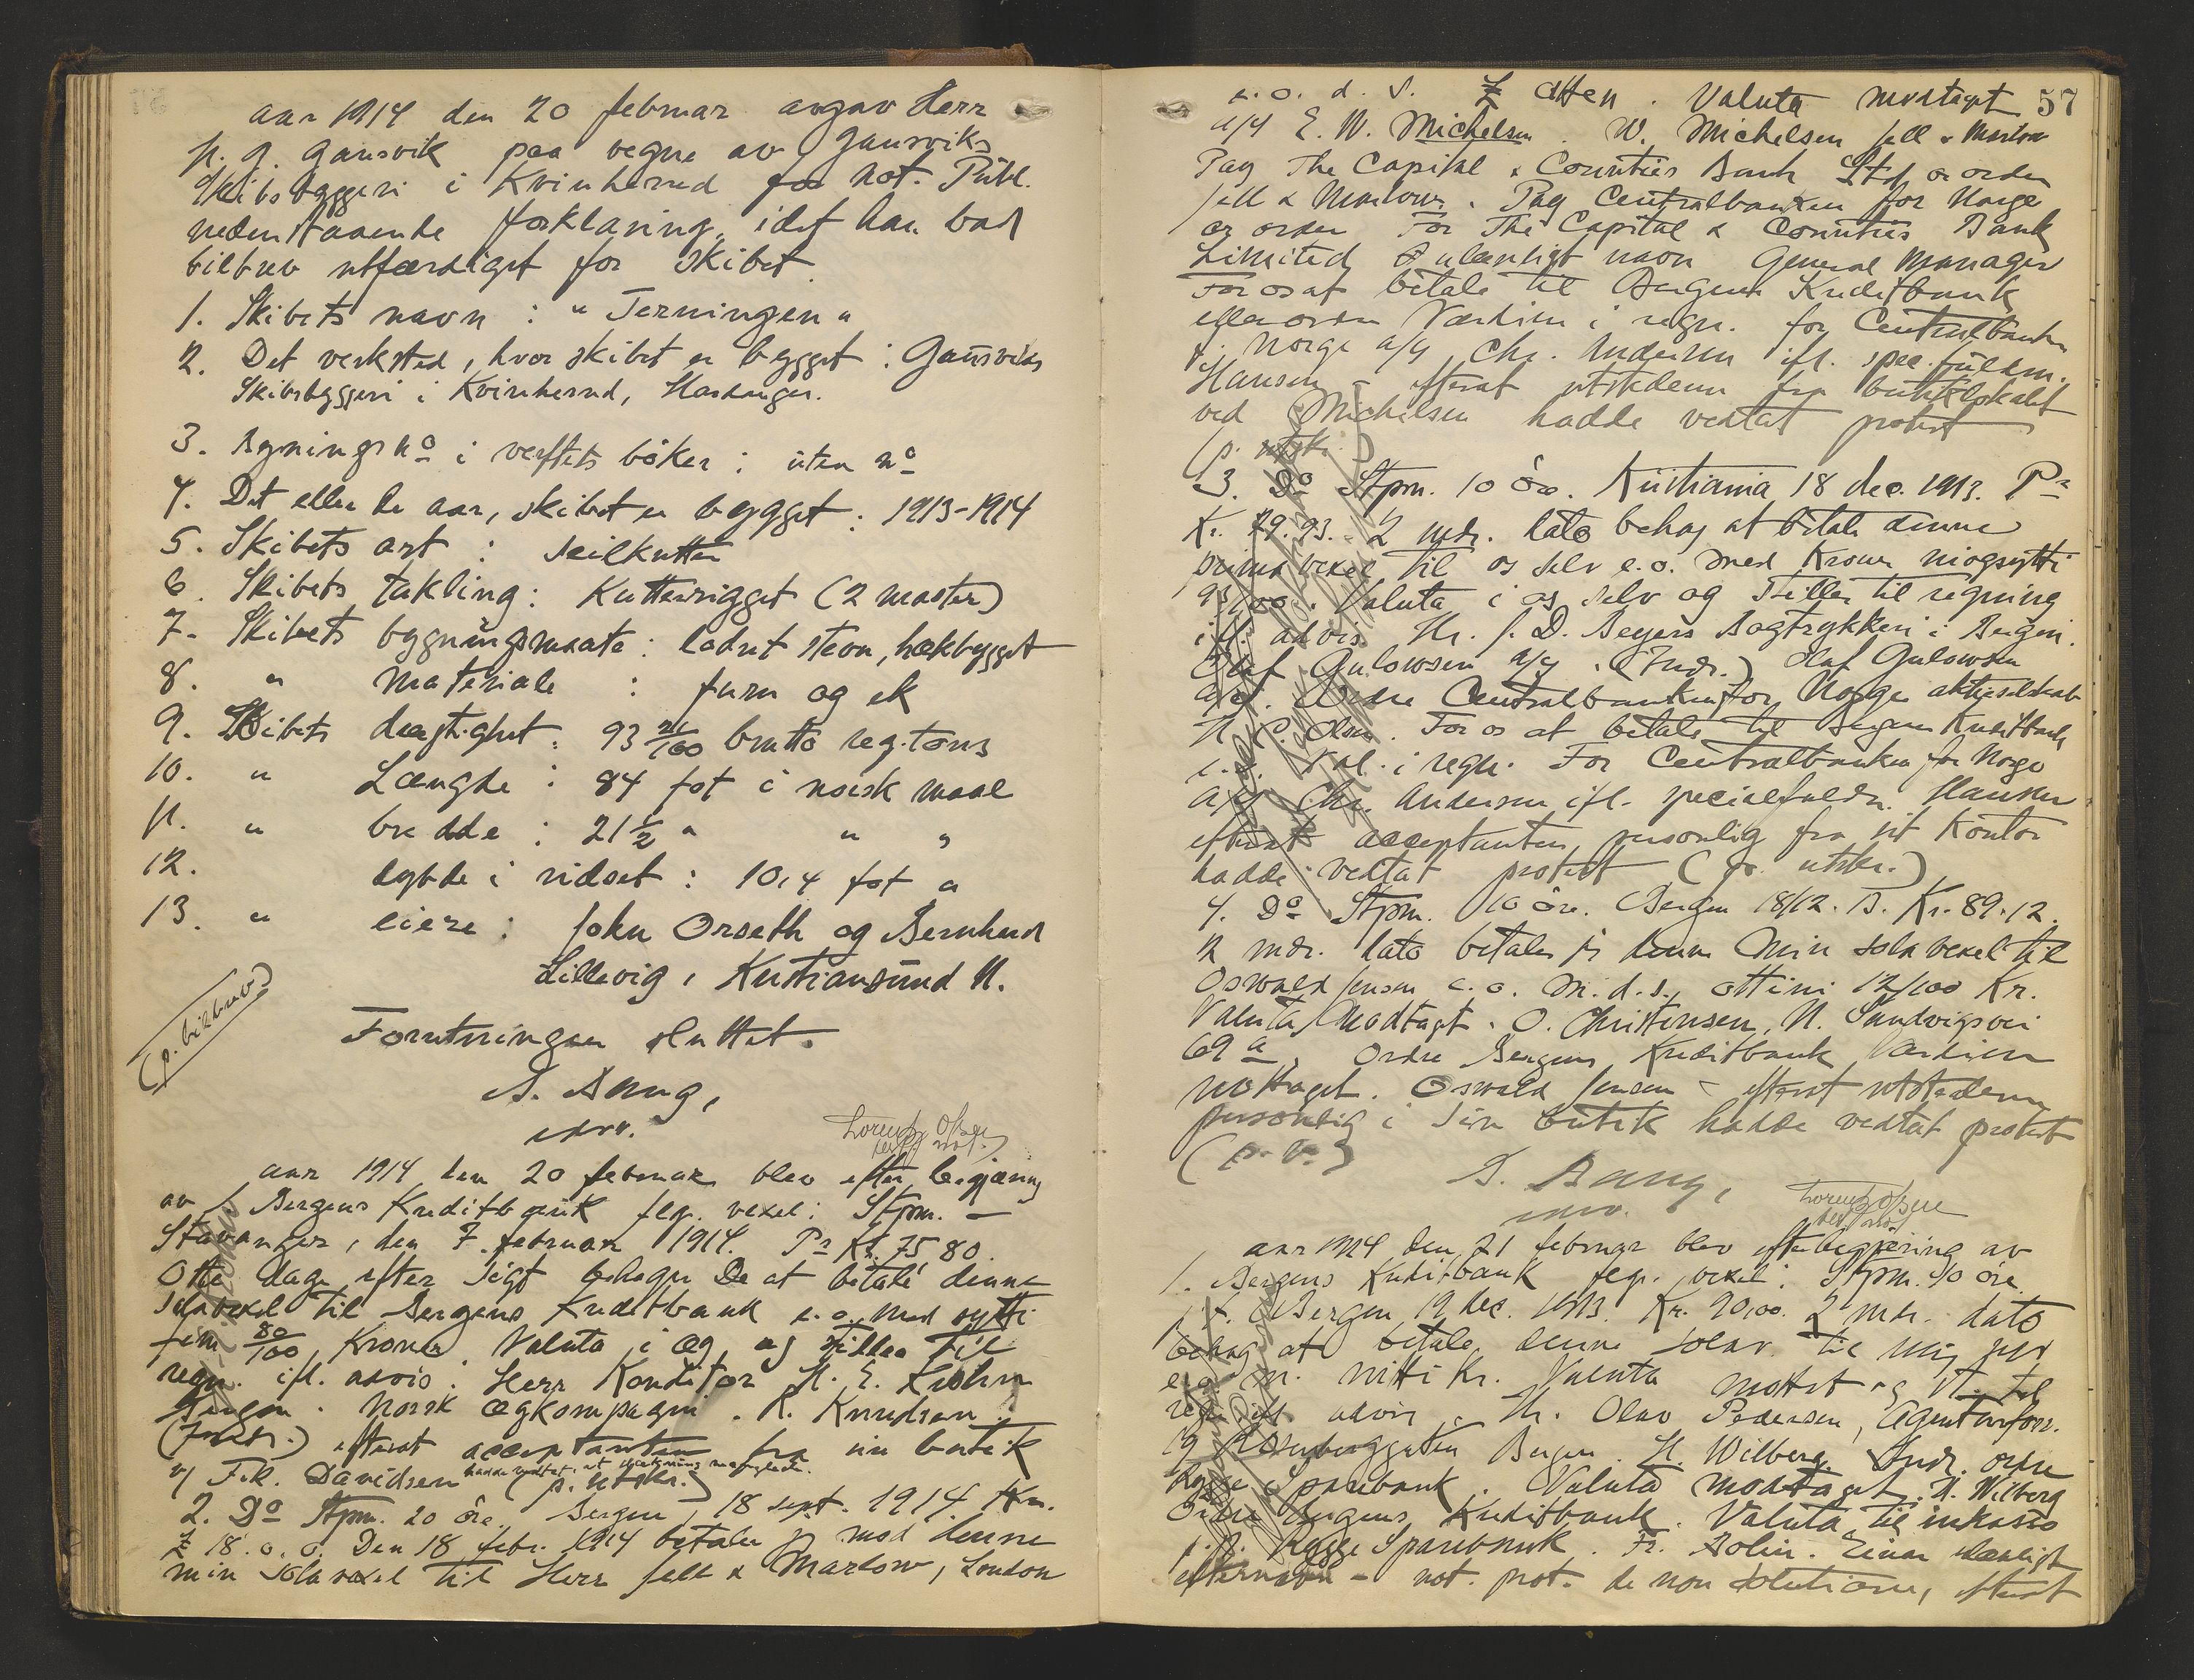 aar 1914 den 20 februar avgav Herr
H. G. Gansvik paa vegne av Gansviks
Skibsbyggeri i Kvinherred for Not. Publ.
nedenstaaende forklaring, idet han bad
bilbrev utfærdiget for skibet
1. Skibets navn : " Terningen "
2. Det verksted, hvor skibet er bygget : Gansviks
Skibsbyggeri i Kvinherred, Hardanger.
3. Bygnings No i verftets bøker : uten no
4. Det eller de aar, skibet er bygget : 1913-1914
5. Skibets art : seilkutter
6. Skibets takling : Kutterrigget (2 master)
7. Skibets bygningsmaate : lodret stevn, hækbygget
8. " Materiale : furu og ek
9. Skibets drægtighet : 93 /100 brutto reg. tons
10. " Længde : 84 fot i norsk maal
11. " bredde : 21 1/2 " " "
12. dybde i ridset : 10,4 fot "
13. " eiere : John Orseth og Bernhard
Lillevig, Kristiansund N.
(p. bilbrev)
Forretningen sluttet.
A. Bang,
Lorentz Olsen
aar 1914 den 20 februar blev efter begjæring
av 1. Bergens Kreditbank flg. vexel : Stpm. -
Stavanger, den 7. februar 1914. Pr Kr. 75 80.
Otte dage efter sigt behager De at betale denne
solavexel til Bergens Kreditbank e. o. med sytti
fem 80/100 Kroner. Valuta i og stilles til
regn. ifl. advis. Herr Konditor H. E.
Bergen. Norsk Ægkompagni. R. Knudsen.
(Indr.) efterat acceptanten fra sin butik
v/ Frk. Davidsen hadde vedtat, at dækning manglede. (p. utskr.)
2. Do Stpm. 20 øre. Bergen, 18 sept. 1914.
£ 18. o. o. Den 18 febr. 1914 betaler jeg mod denne
min solavexel til Herr Jell & Marlow, London
57
e. o. d. S. £ Atten. Valuta modtaget
a/s E. W. Michelsen. W. Michelsen Jell & Marlow
Pay The Capital & Counties Bank Ltd or order
Jell & Marlow. Pay Centralbanken for Norge
or order For The Capital & Counties Bank
Limited ulæseligt navn General Manager
For os at betale til Bergens Kreditbank
eller ordre Værdien i regn. for Centralbanken
f. Norge a/s, Chr. Andersen ifl. spec. fuldm.
Hansen - efterat utstederen fra butiklokalet
ved Michelsen hadde vedtat protest
(p. utskr.)
3. Do Stpm. 10 øre. Kristiania, 18 dec. 1913. Pr
Kr. 79.93. 2 mdr. dato behag at betale denne
prima vexel til os selv e. o. med Kroner niogsytti
93/100. Valuta i os selv og stilles til regning
ifl. advis Hr. J. D. Beyers Bogtrykkeri i Bergen.
Olaf Gulowsen a/s. (Indr.) Olaf Gulowsen
a/s. Ordre Centralbanken for Norge aktieselskab
N. P. Olsen. For os at betale til Bergens Kreditbank
e. o. Val. i regn. For Centralbanken for Norge
a/s Chr. Andersen ifl. specialfuldm. Hansen
efterat acceptanten personlig fra sit Kontor
hadde vedtat protest (p. utskr.)
4. Do Stpm. 10 øre. Bergen 18/12. 13. Kr. 89.12.
2 mdr. dato betaler jeg denne Min sola vexel til
Oswald Jensen e. o. m. d. s., ottini 12/100 Kr.
Valuta modtaget. O. Christensen, N. Sandvigsvei
69 a. Ordre Bergens Kreditbank Værdien
mottaget. Oswald Jensen - efterat utstederen
personlig i sin butik hadde vedtat protest
(p. v.)
A. Bang,
Lorentz Olsen
aar 1914 den 21 februar blev efter begjæring av
1. Bergens Kreditbank flg. vexel : Stpm. 10 øre
Bergen 19 dec. 1913. Kr. 90,00. 2 mdr. dato
behag at betale denne solav. til mig selv
e. o. m. nitti Kr. Valuta mottat og st. til
regn. ifl. advis. Hr. Olav Pedersen, Agenturforr.
19 Rosenberggaten Bergen. H. Wilberg. Indr. ordre
Rygge Sparebank. Valuta modtaget. H. Wilberg
Ordre Bergens Kreditbank. Valuta til inkasso
p. p. Rygge Sparebank. Fr. Bolin. Einar ulæseligt
efternavn - not. prot. de non solutione, efterat